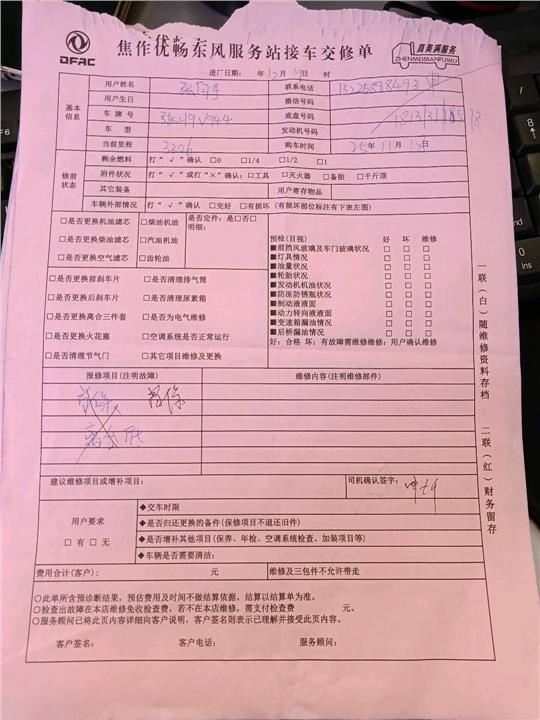 DFAC
焦作优畅东风服务站接车交修单
真美满服务
ZHENMEIMANFUWU
进厂日期： 年12月19日 时
基本信息
用户姓名 联系电话
用户生日 微信号码
车牌号 底盘号码
车型 发动机号码
当前里程 3306 购车时间 25年11月18日
修前状态
剩余燃料 打“√”确认 □0 □1/4 □1/2 □1
附件状况 打“√”或打“×”确认：□工具 □灭火器 □备胎 □千斤顶
其它装备 用户寄存物品
车辆外部情况 打“√”确认 □完好 □有损坏（有损坏部位标注有下表左图）
□是否更换机油滤芯 □柴油机油 是否定件：是□否□
□是否更换柴油滤芯 □汽油机油 明细：
□是否更换空气滤芯 □齿轮油
□是否更换前刹车片 □是否清理排气筒
□是否更换后刹车片 □是否清理尿素箱
□是否更换离合三件套 □是否为电气维修
□是否更换火花塞 □空调系统是否正常运行
□是否清理节气门 □其它项目维修及更换
预检(目视) 好 坏 维修
■前挡风玻璃及车门玻璃状况 □ □ □
■灯具情况 □ □ □
■油量状况 □ □ □
■轮胎状况 □ □ □
■发动机机油状况 □ □ □
■防冻防锈瓶状况 □ □ □
■制动液液面 □ □ □
■动力转向液液面 □ □ □
■变速箱漏油情况 □ □ □
■后桥漏油情况 □ □ □
好：合格 坏：有故障需维修维修：用户确认维修
报修项目(注明故障) 维修内容(注明维修部件)
首保
建议维修项目或增补项目： 司机确认签字：
用户要求
□有□无
◆交车时限
◆是否归还更换的备件(保修项目不退还旧件)
◆是否增补其他项目(保养、年检、空调系统检查、加装项目等)
◆车辆是否需要清洁：
费用合计(客户)： 元 维修及三包件不允许带走
○此单所含预诊断结果，预估费用及时间不做结算依据，结算以结算单为准。
○检查出故障在本店维修免收检查费，若不在本店维修，需支付检查费 元。
○服务顾问已将此页内容详细向客户说明，客户签名则表示已理解并接受此页内容。
客户签名： 客户电话： 服务顾问：
一联（白）随维修资料存档
二联（红）财务留存